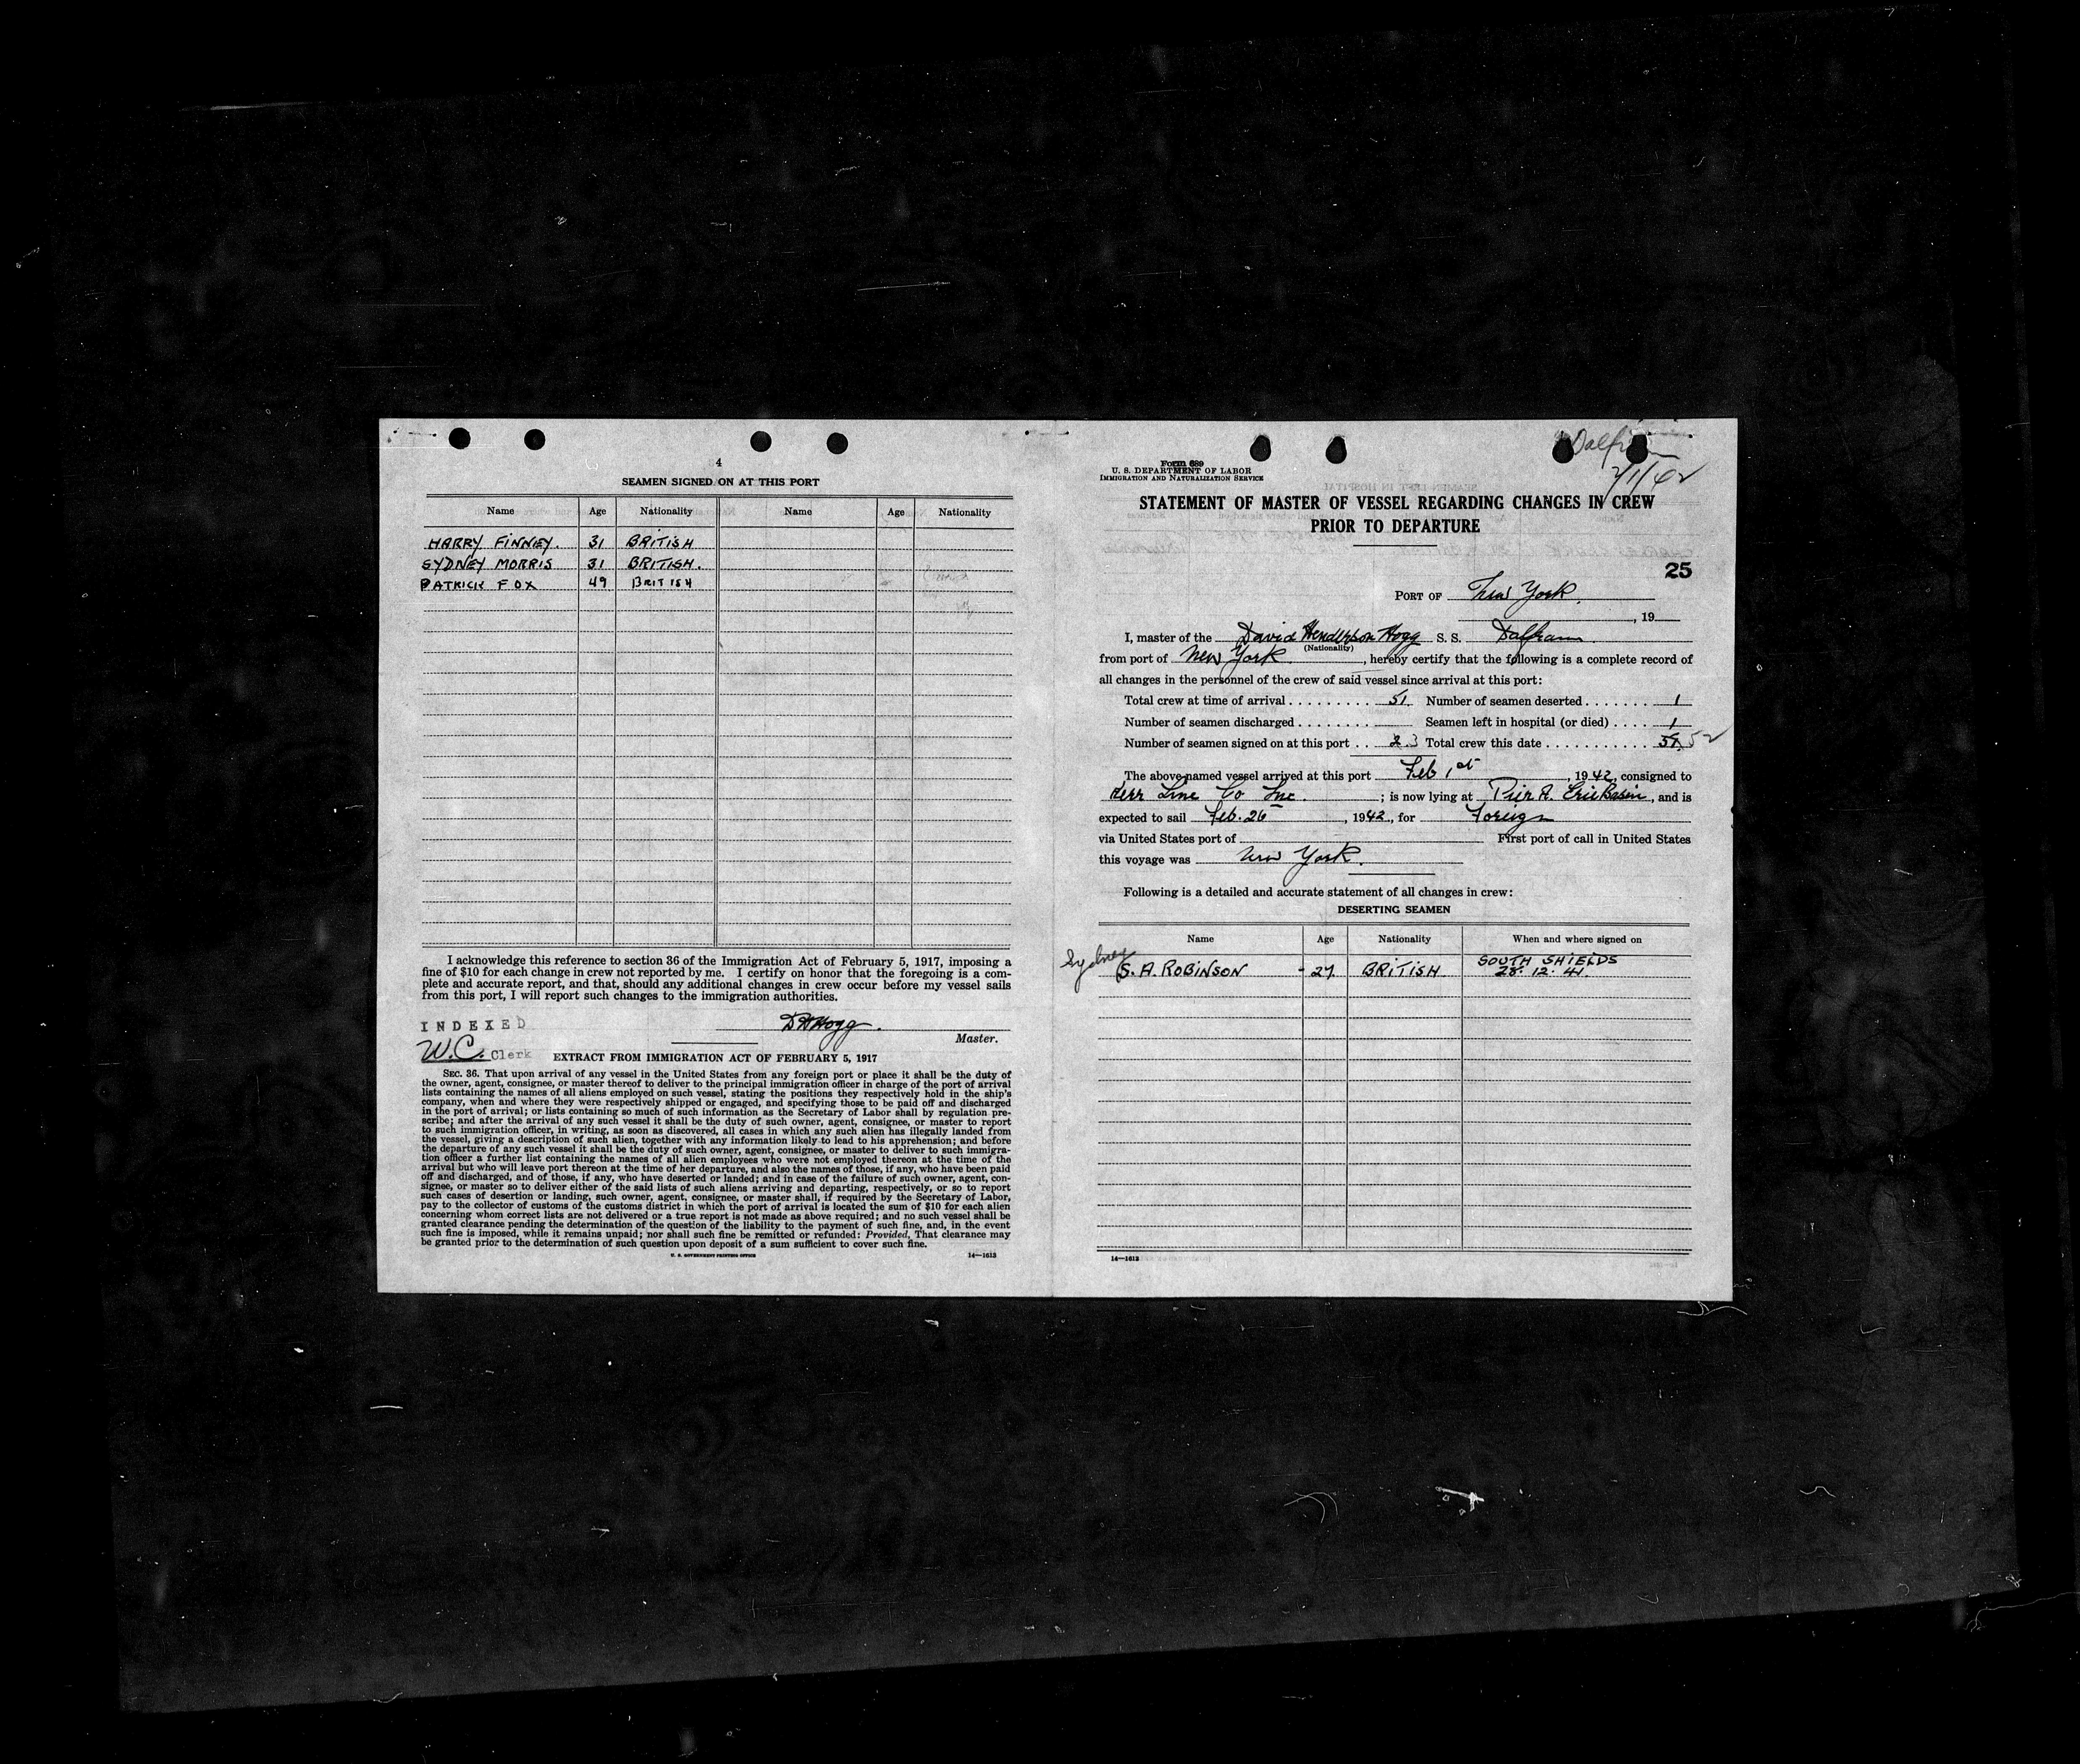 4
SEAMEN SIGNED ON AT THIS PORT
Name Age Nationality Name Age Nationality
HARRY FINNEY. 31 BRITISH
SYDNEY MORRIS 31 BRITISH.
PATRICK FOX 49 BRITISH
I acknowledge this reference to section 36 of the Immigration Act of February 5, 1917, imposing a
fine of $10 for each change in crew not reported by me. I certify on honor that the foregoing is a com-
plete and accurate report, and that, should any additional changes in crew occur before my vessel sails
from this port, I will report such changes to the immigration authorities.
INDEXED
DHHogg.
Master.
W.C. Clerk
EXTRACT FROM IMMIGRATION ACT OF FEBRUARY 5, 1917
SEC. 36. That upon arrival of any vessel in the United States from any foreign port or place it shall be the duty of
the owner, agent, consignee, or master thereof to deliver to the principal immigration officer in charge of the port of arrival
lists containing the names of all aliens employed on such vessel, stating the positions they respectively hold in the ship's
company, when and where they were respectively shipped or engaged, and specifying those to be paid off and discharged
in the port of arrival; or lists containing so much of such information as the Secretary of Labor shall by regulation pre-
scribe; and after the arrival of any such vessel it shall be the duty of such owner, agent, consignee, or master to report
to such immigration officer, in writing, as soon as discovered, all cases in which any such alien has illegally landed from
the vessel, giving a description of such alien, together with any information likely to lead to his apprehension; and before
the departure of any such vessel it shall be the duty of such owner, agent, consignee, or master to deliver to such immigra-
tion officer a further list containing the names of all alien employees who were not employed thereon at the time of the
arrival but who will leave port thereon at the time of her departure, and also the names of those, if any, who have been paid
off and discharged, and of those, if any, who have deserted or landed; and in case of the failure of such owner, agent, con-
signee, or master so to deliver either of the said lists of such aliens arriving and departing, respectively, or so to report
such cases of desertion or landing, such owner, agent, consignee, or master shall, if required by the Secretary of Labor,
pay to the collector of customs of the customs district in which the port of arrival is located the sum of $10 for each alien
concerning whom correct lists are not delivered or a true report is not made as above required; and no such vessel shall be
granted clearance pending the determination of the question of the liability to the payment of such fine, and, in the event
such fine is imposed, while it remains unpaid; nor shall such fine be remitted or refunded: Provided, That clearance may
be granted prior to the determination of such question upon deposit of a sum sufficient to cover such fine.
U. S. GOVERNMENT PRINTING OFFICE 14—1613
2/1/42
Form 689
U. S. DEPARTMENT OF LABOR
IMMIGRATION AND NATURALIZATION SERVICE
STATEMENT OF MASTER OF VESSEL REGARDING CHANGES IN CREW
PRIOR TO DEPARTURE
25
PORT OF New York.
, 19
I, master of the David Henderson Hogg S. S. Dalfram
(Nationality)
from port of New York , hereby certify that the following is a complete record of
all changes in the personnel of the crew of said vessel since arrival at this port:
Total crew at time of arrival . . . . . . . . . 51 Number of seamen deserted . . . . . . . 1
Number of seamen discharged . . . . . . . Seamen left in hospital (or died) . . . . 1
Number of seamen signed on at this port . . 2 3 Total crew this date . . . . . . . . . . . 51 52
The above-named vessel arrived at this port Feb 1st , 1942, consigned to
Kerr Line Co Inc. ; is now lying at Pier A. Erie Basin, and is
expected to sail Feb. 26 , 1942, for Foreign
via United States port of First port of call in United States
this voyage was New York.
Following is a detailed and accurate statement of all changes in crew:
DESERTING SEAMEN
Name Age Nationality When and where signed on
Sydney
S. A. ROBINSON 27 BRITISH SOUTH SHIELDS
28. 12. 41.
14—1613